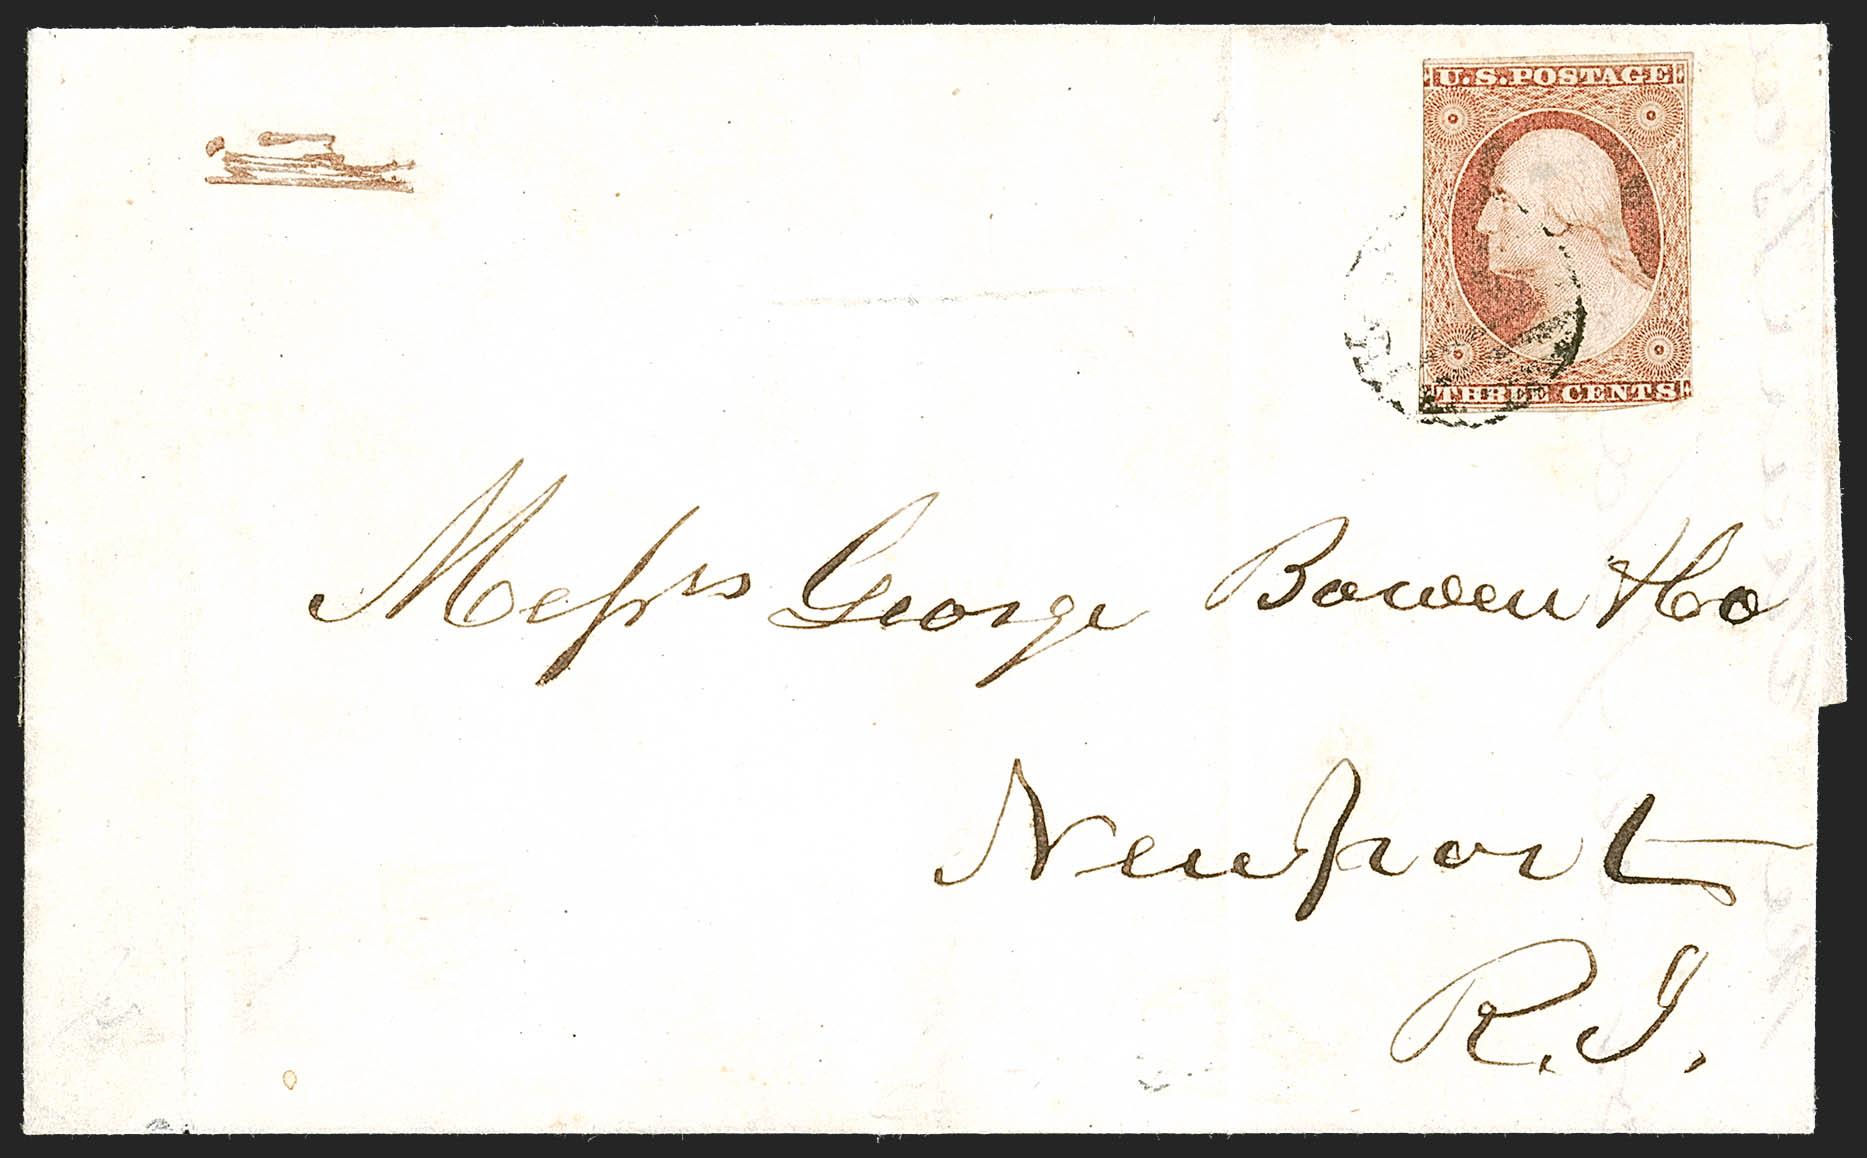 U.S. POSTAGE
THREE CENTS
Messrs George Bowen & Co
Newport
R.I.